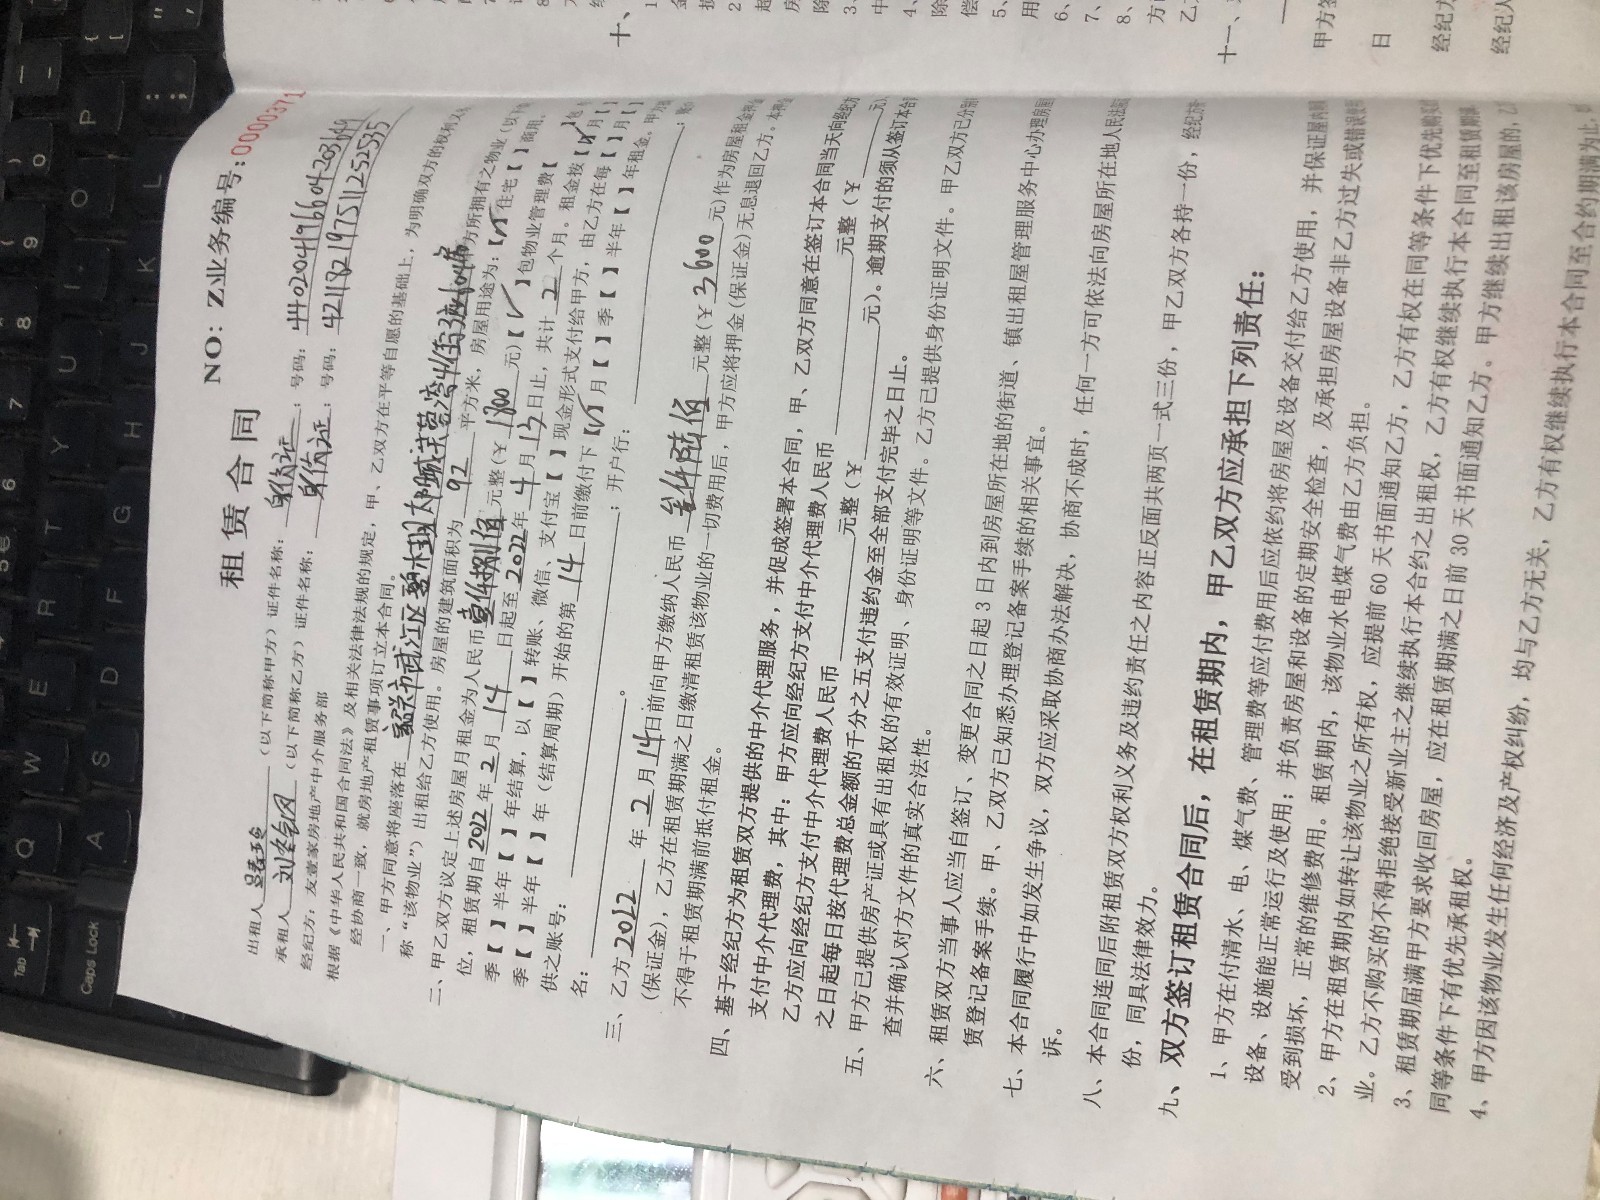 租赁合同
NO: Z业务编号: 0000371
出租人 (以下简称甲方) 证件名称: 身份证 ; 号码:
承租人 (以下简称乙方) 证件名称: 身份证 ; 号码: 421182197511252535
经纪方: 友壹家房地产中介服务部
根据《中华人民共和国合同法》及相关法律法规的规定, 甲、乙双方在平等自愿的基础上, 为明确双方的权利义
经协商一致, 就房地产租赁事项订立本合同。
一、甲方同意将座落在 方所拥有之物业 (以下
称“该物业”) 出租给乙方使用。房屋的建筑面积为 92 平方米, 房屋用途为:【✓】住宅【 】商用。
二、甲乙双方议定上述房屋月租金为人民币 壹仟捌佰 元整(¥ 1800 元)【✓】包物业管理费【
位, 租赁期自 2022 年 2 月 14 日起至 2022 年 4 月 13 日止, 共计 2 个月。租金按【✓】月【
季【 】半年【 】年结算, 以【 】转账、微信、支付宝【 】现金形式支付给甲方, 由乙方在每【 】月【
季【 】半年【 】年 (结算周期) 开始的第 14 日前缴付下【✓】月【 】季【 】半年【 】年租金,
供之账号: ; 开户行:
名: 。
三、乙方 2022 年 2 月 14 日前向甲方缴纳人民币 叁仟陆佰 元整(¥ 3600 元)作为房屋租金押
(保证金), 乙方在租赁期满之日缴清租赁该物业的一切费用后, 甲方应将押金(保证金)无息退回乙方。
不得于租赁期满前抵付租金。
四、基于经纪方为租赁双方提供的中介代理服务, 并促成签署本合同, 甲、乙双方同意在签订本合同当天向经纪方
支付中介代理费, 其中: 甲方应向经纪方支付中介代理费人民币 元整 (¥ 元)
乙方应向经纪方支付中介代理费人民币 元整 (¥ 元)。逾期支付的须从签订本合
之日起每日按代理费总金额的千分之五支付违约金至全部支付完毕之日止。
五、甲方已提供房产证或具有出租权的有效证明、身份证明等文件。乙方已提供身份证明文件。甲乙双方已分别
查并确认对方文件的真实合法性。
六、租赁双方当事人应当自签订、变更合同之日起 3 日内到房屋所在地的街道、镇出租屋管理服务中心办理房屋
赁登记备案手续。甲、乙双方已知悉办理登记备案手续的相关事宜。
七、本合同履行中如发生争议, 双方应采取协商办法解决, 协商不成时, 任何一方可依法向房屋所在地人民法院
诉。
八、本合同连同后附租赁双方权利义务及违约责任之内容正反面共两页一式三份, 甲乙双方各持一份, 经纪方
份, 同具法律效力。
九、双方签订租赁合同后, 在租赁期内, 甲乙双方应承担下列责任:
1、甲方在付清水、电、煤气费、管理费等应付费用后应依约将房屋及设备交付给乙方使用, 并保证屋内
设备、设施能正常运行及使用; 并负责房屋和设备的定期安全检查, 及承担房屋设备非乙方过失或错误
受到损坏, 正常的维修费用。租赁期内, 该物业水电煤气费由乙方负担。
2、甲方在租赁期内如转让该物业之所有权, 应提前 60 天书面通知乙方, 乙方有权在同等条件下优先购买
业。乙方不购买的不得拒绝接受新业主之继续执行本合约之出租权, 乙方有权继续执行本合同至租赁期
3、租赁期届满甲方要求收回房屋, 应在租赁期满之日前 30 天书面通知乙方。甲方继续出租该房屋的,
同等条件下有优先承租权。
4、甲方因该物业发生任何经济及产权纠纷, 均与乙方无关, 乙方有权继续执行本合同至合约期满为止,